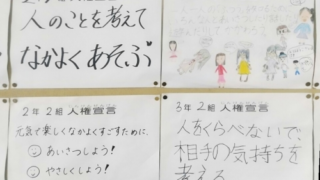 人のことを考えて
なかよくあそぶ
2年2組 人権宣言
元気で楽しくなかよくすごすために、
あいさつしよう!
やさしくしよう!
3年2組 人権宣言
人をくらべないで、
相手の気持ちを
考える